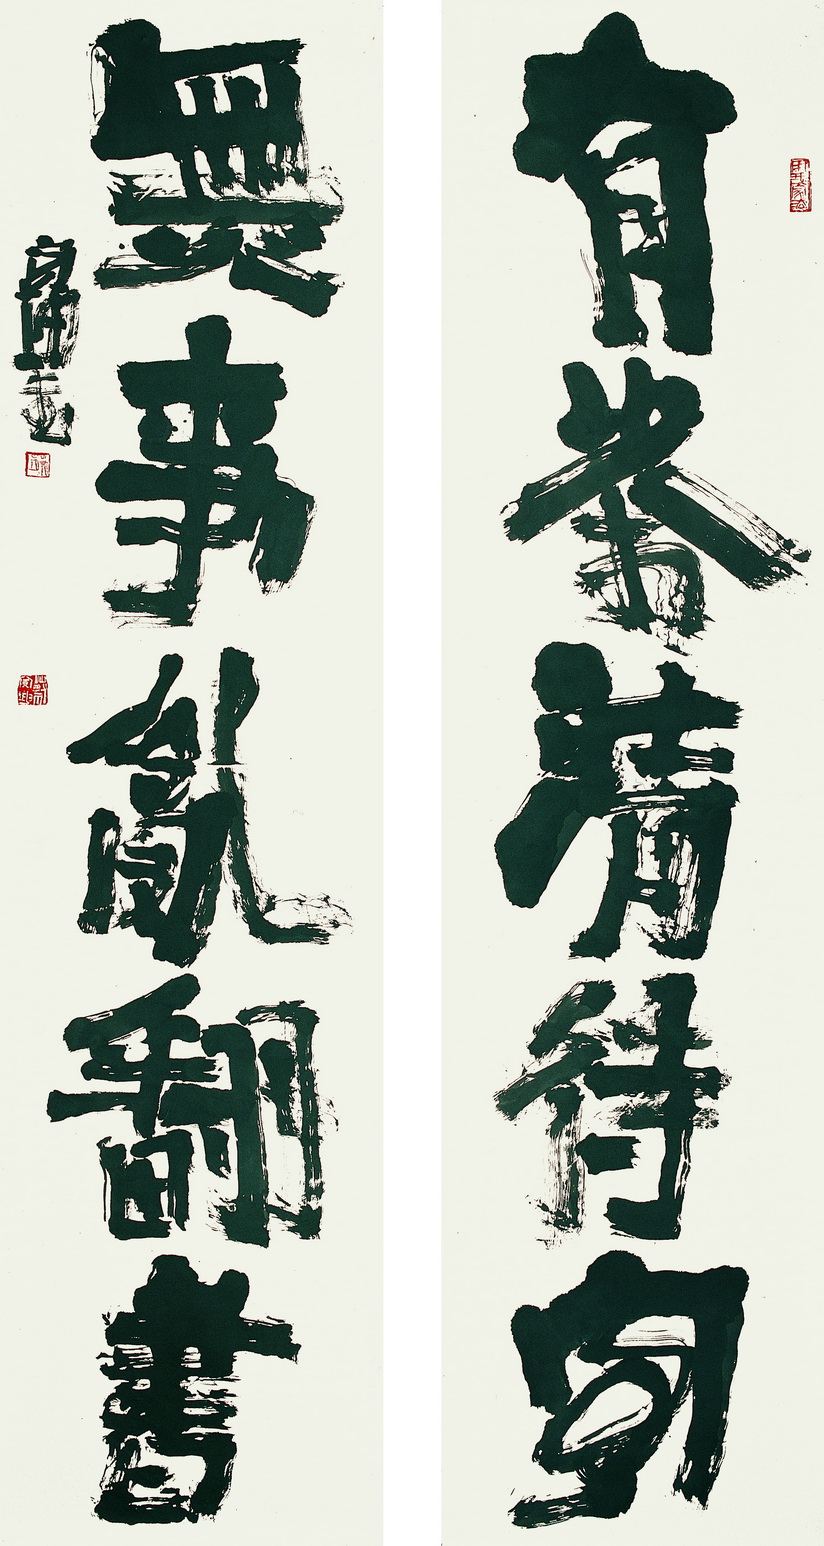 有茶清待客
無事亂翻書